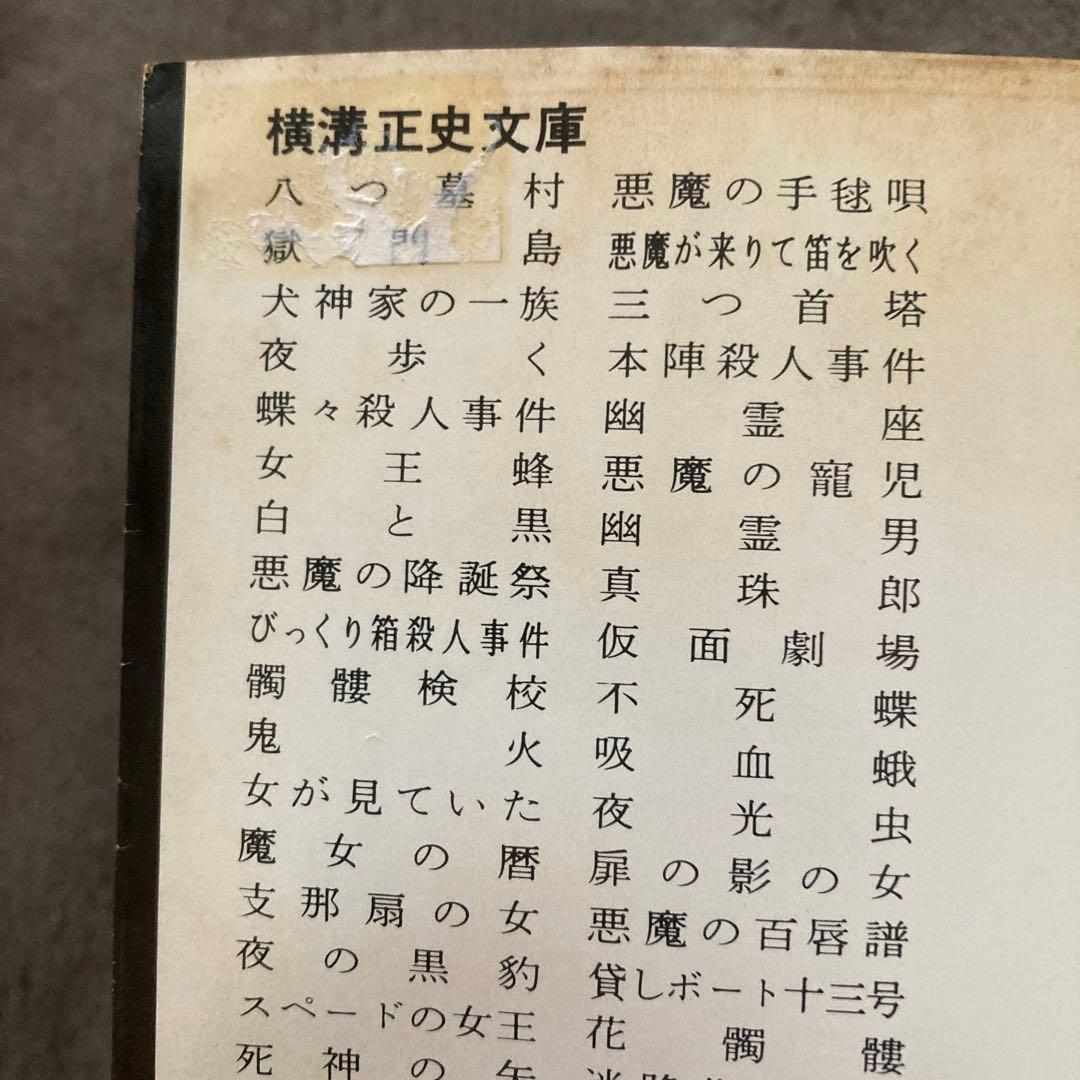 横溝正史文庫
八つ墓村
獄門島
犬神家の一族
夜歩く
蝶々殺人事件
女王蜂
白と黒
悪魔の降誕祭
びっくり箱殺人事件
髑髏検校
鬼火
女が見ていた
魔女の暦
支那扇の女
夜の黒豹
スペードの女王
死神の矢
悪魔の手毬唄
悪魔が来りて笛を吹く
三つ首塔
本陣殺人事件
幽霊座
悪魔の寵児
幽霊男
真珠郎
仮面劇場
不死蝶
吸血蛾
夜光虫
扉の影の女
悪魔の百唇譜
貸しボート十三号
花髑髏